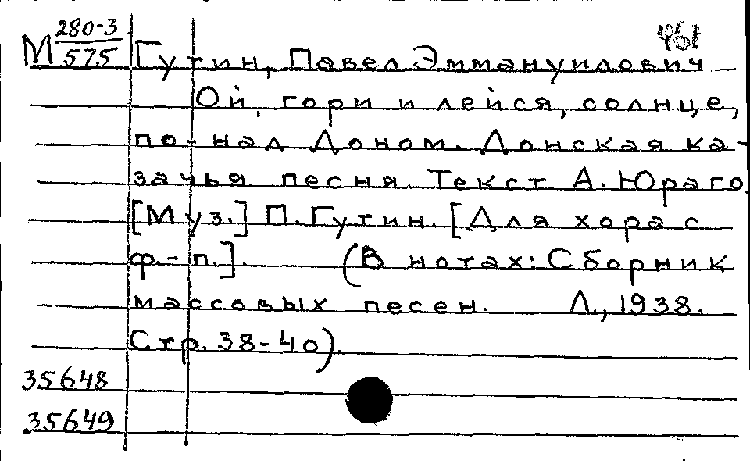 М 280-3/575 Гутин, Павел Эммануилович
Ой, гори и лейся, солнце,
по-над Доном. Донская ка-
зачья песня. Текст А. Юраго.
[Муз.] П. Гутин. [Для хора с
ф.-п.]. (В нотах: Сборник
массовых песен. Л., 1938.
Стр. 38-40).
35648
35649